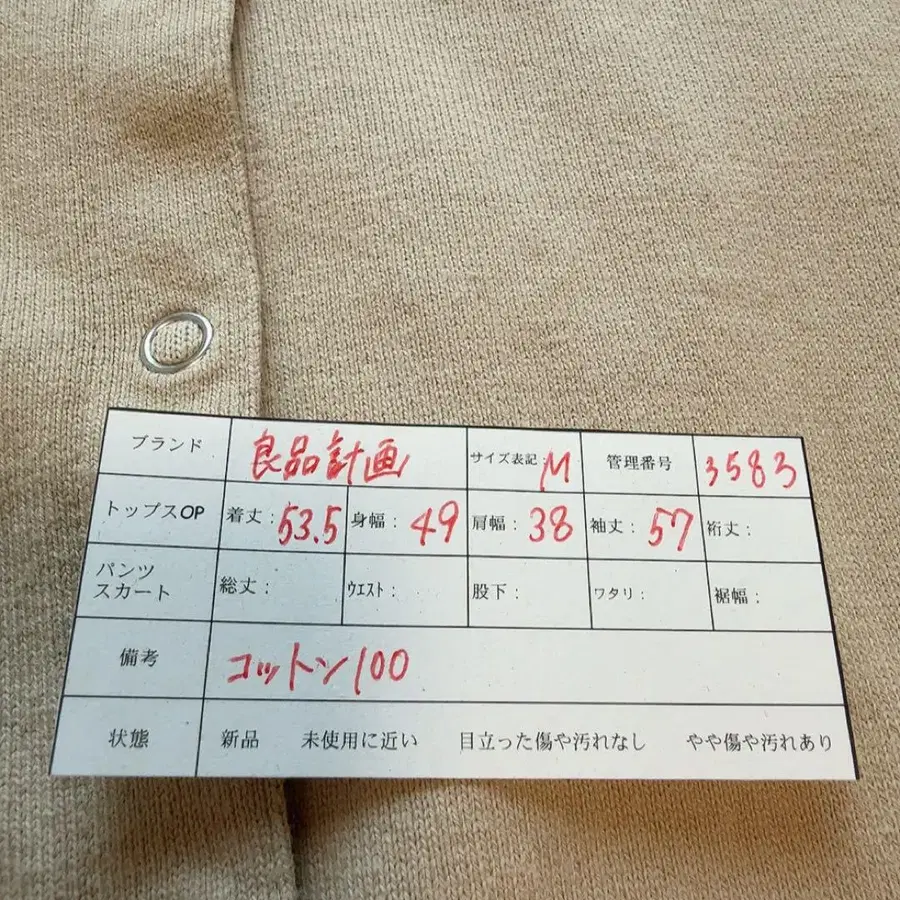 ブランド 良品計画 サイズ表記: M 管理番号 3583
トップスOP 着丈: 53.5 身幅: 49 肩幅: 38 袖丈: 57 裄丈:
パンツ
スカート 総丈: ウエスト: 股下: ワタリ: 裾幅:
備考 コットン100
状態 新品 未使用に近い 目立った傷や汚れなし やや傷や汚れあり